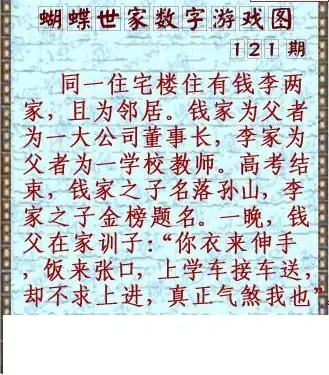 蝴蝶世家数字游戏图
121期
同一住宅楼住有钱李两
家，且为邻居。钱家为父者
为一大公司董事长，李家为
父者为一学校教师。高考结
束，钱家之子名落孙山，李
家之子金榜题名。一晚，钱
父在家训子：“你衣来伸手
，饭来张口，上学车接车送，
却不求上进，真正气煞我也”